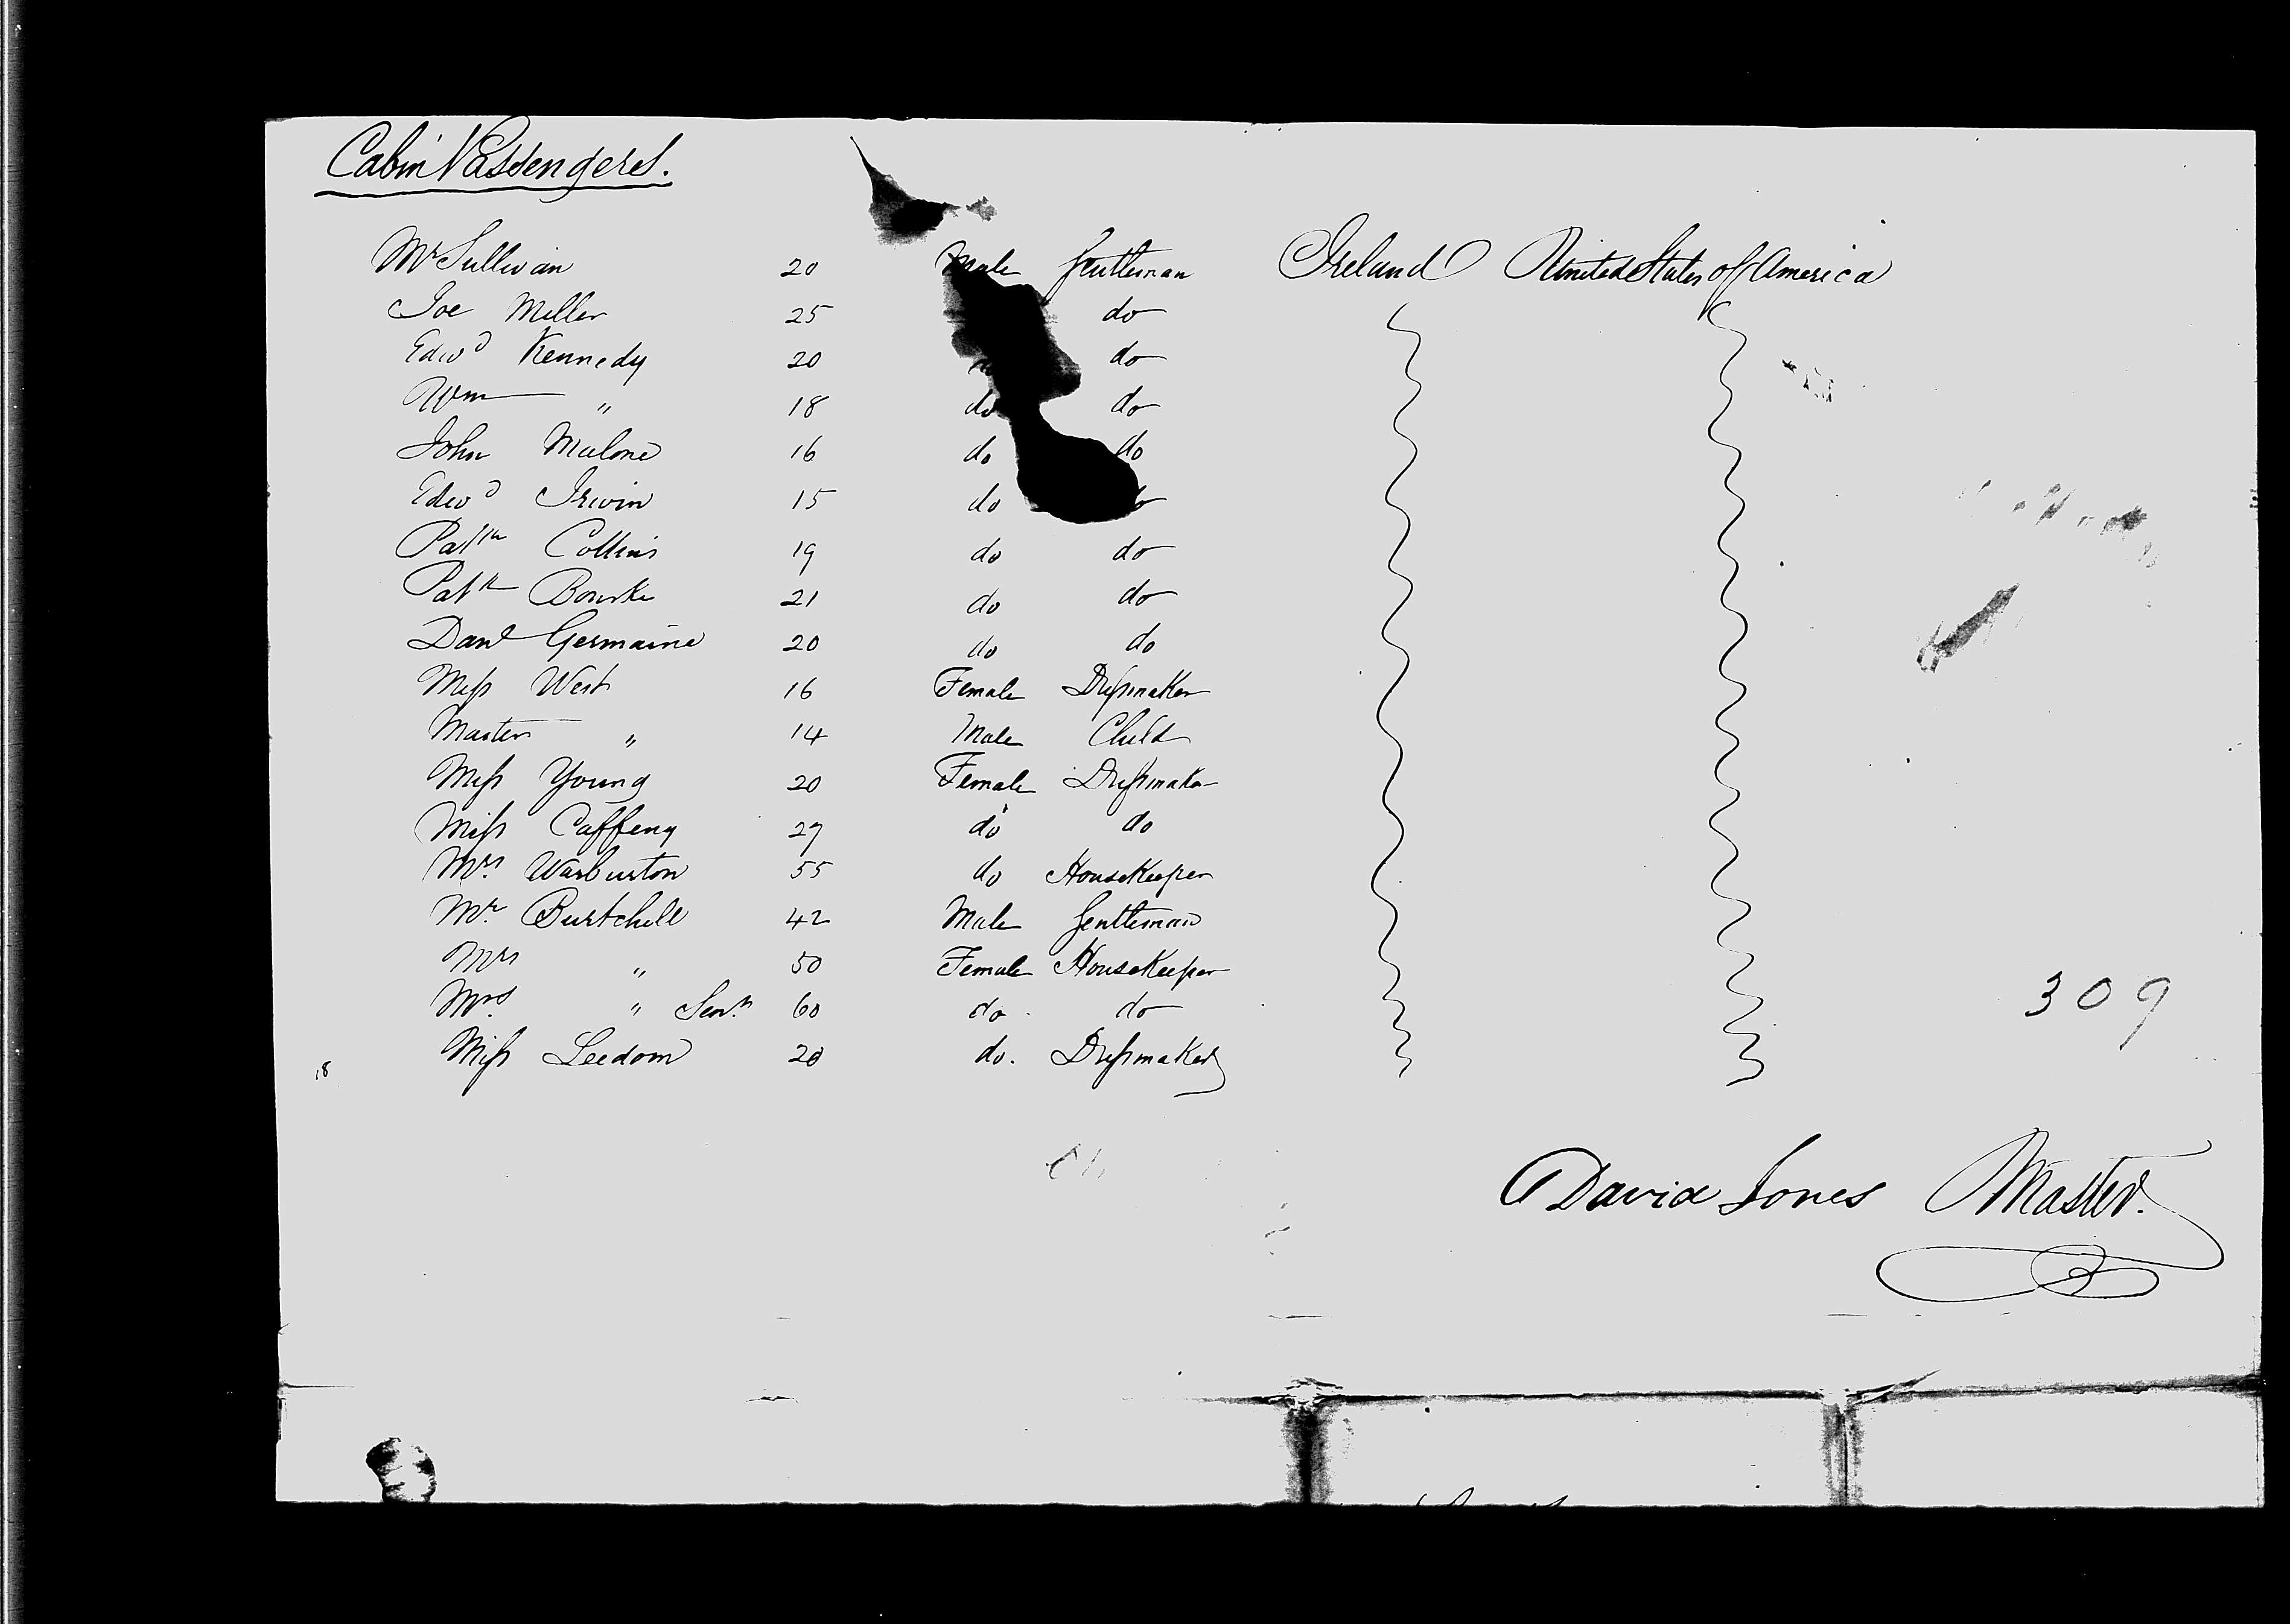 Cabin Passengers.
Mr Sullivan 20 Male Gentleman Ireland United States of America
Joe Miller 25 do
Edwd Kennedy 20 do do
Wm " 18 do do
John Malone 16 do do
Edwd Irwin 15 do do
Patk Collins 19 do do
Patk Bourke 21 do do
Danl Germaine 20 do do
Miss West 16 Female Dressmaker
Master " 14 Male Child
Miss Young 20 Female Dressmaker
Miss Caffeny 27 do do
Mrs. Warburton 55 do HouseKeeper
Mr. Burtchell 42 Male Gentleman
Mrs " 50 Female HouseKeeper
Mrs. " Senr. 60 do do
18 Miss Leedom 20 do. Dressmaker
309
David Jones Master.